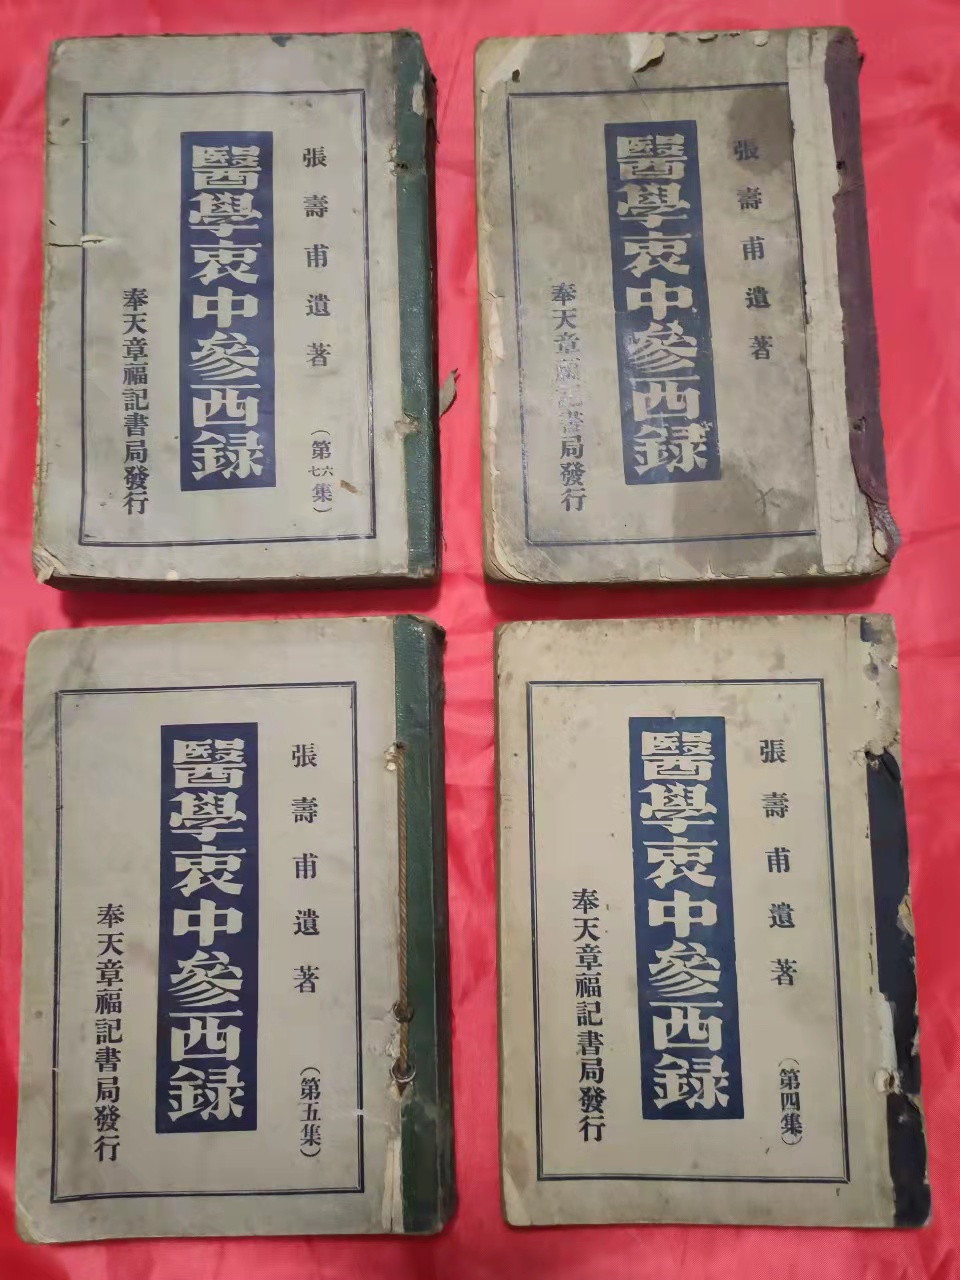 張壽甫遺著
醫學衷中參西録
(第六七集)
奉天章福記書局發行
張壽甫遺著
醫學衷中參西録
奉天章福記書局發行
張壽甫遺著
醫學衷中參西録
(第五集)
奉天章福記書局發行
張壽甫遺著
醫學衷中參西録
(第四集)
奉天章福記書局發行